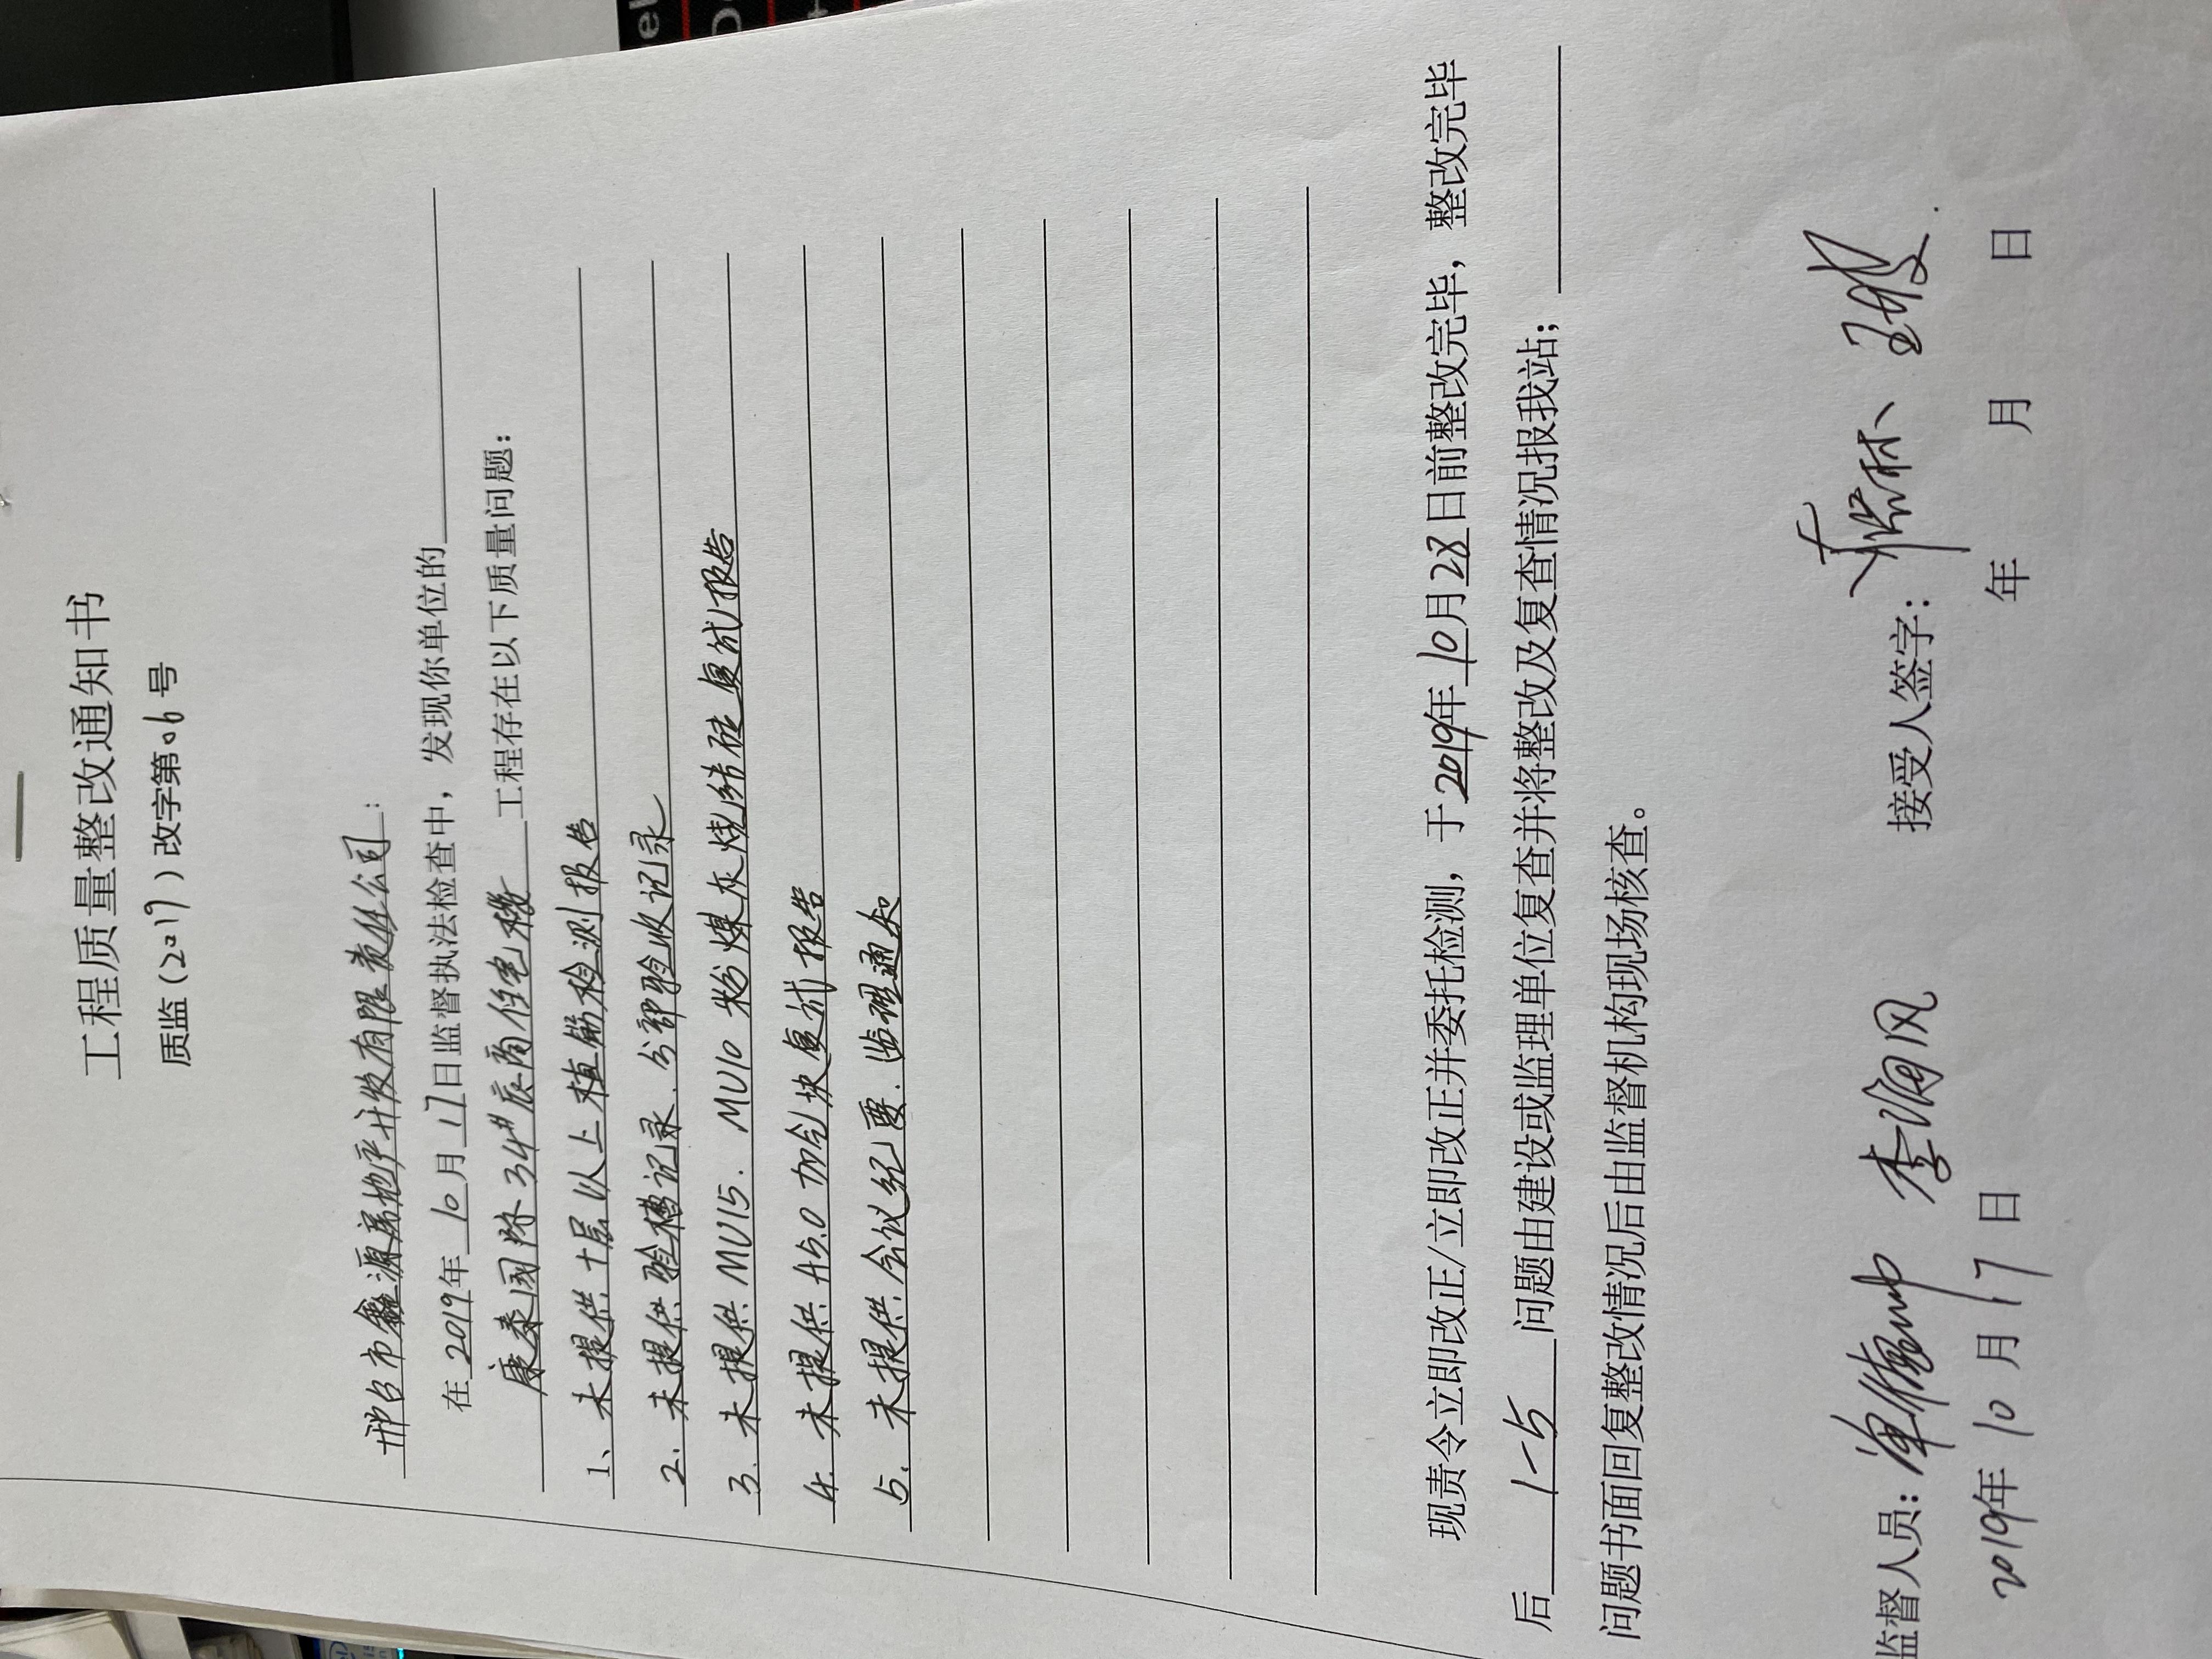 工程质量整改通知书
质监（2019）改字第06号
邢台市鑫源房地产开发有限责任公司：
在2019年10月17日监督执法检查中，发现你单位的
康泰国际34#底商住宅楼 工程存在以下质量问题：
1、未提供十层以上植筋检测报告
2、未提供验槽记录、分部验收记录
3、未提供MU15、MU10粉煤灰烧结砖复试报告
4、未提供A5.0加气块复试报告
5、未提供会议纪要、监理通知
现责令立即改正/立即改正并委托检测，于2019年10月28日前整改完毕，整改完毕
后 1-5 问题由建设或监理单位复查并将整改及复查情况报我站；
问题书面回复整改情况后由监督机构现场核查。
监督人员： 李海风 接受人签字：
2019年10月17日 年 月 日